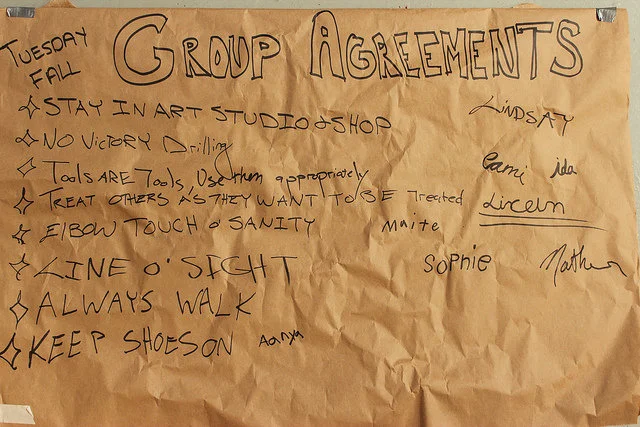 TUESDAY
FALL
GROUP AGREEMENTS
STAY IN ART STUDIO & SHOP
LINDSAY
NO VICTORY Drilling
TOOLS ARE TOOLS, Use them appropriately
Cami ida
TREAT OTHERS AS THEY WANT TO BE Treated
ELBOW TOUCH O' SANITY
Maite
LINE O' SIGHT
SOPHIE
ALWAYS WALK
KEEP SHOES ON
Aanya